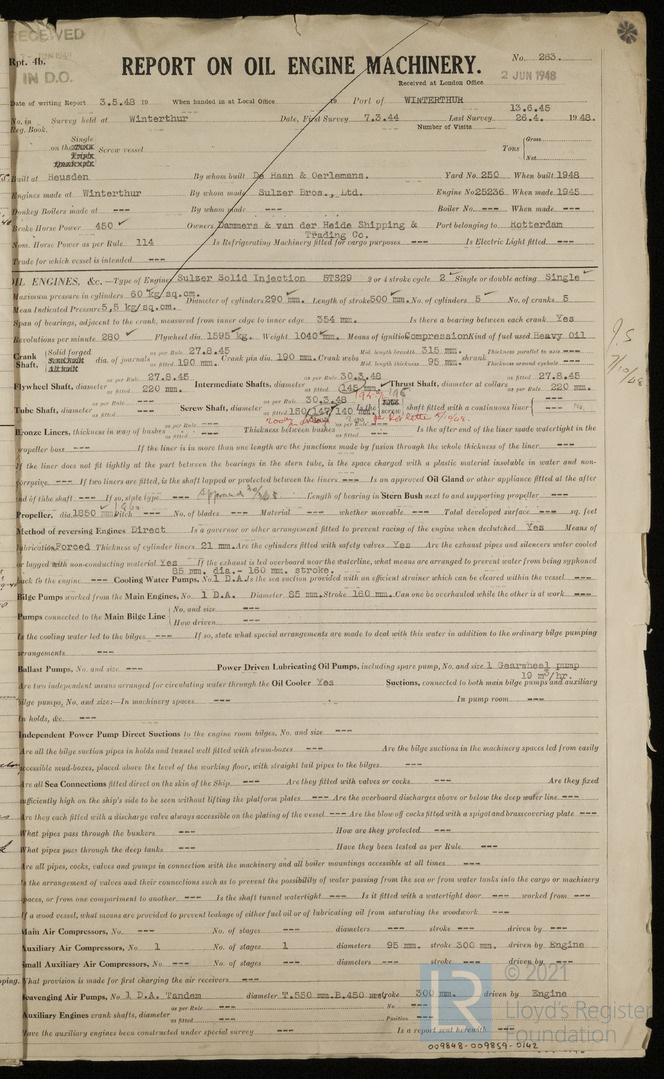 RECEIVED
IN D.O.
Rpt. 4b.
No. 283.
REPORT ON OIL ENGINE MACHINERY.
Received at London Office 2 JUN 1948
Date of writing Report 3.5.48 19 When handed in at Local Office 19 Port of WINTERTHUR
No. in Survey held at Winterthur Date, First Survey 7.3.44 Last Survey 13.6.45 26.4. 1948.
Reg. Book. Number of Visits
Single
on the Screw vessel Tons Gross Net
Built at Heusden By whom built De Haan & Oerlemans. Yard No. 250 When built 1948
Engines made at Winterthur By whom made Sulzer Bros., Ltd. Engine No. 25236 When made 1945
Donkey Boilers made at --- By whom made --- Boiler No. --- When made ---
Brake Horse Power 450 Owners Dammers & van der Heide Shipping & Trading Co. Port belonging to Rotterdam
Nom. Horse Power as per Rule 114 Is Refrigerating Machinery fitted for cargo purposes --- Is Electric Light fitted ---
Trade for which vessel is intended ---
OIL ENGINES, &c.—Type of Engine Sulzer Solid Injection 5TS29 2 or 4 stroke cycle 2 Single or double acting Single
Maximum pressure in cylinders 60 kg/sq.cm. Diameter of cylinders 290 mm. Length of stroke 500 mm. No. of cylinders 5 No. of cranks 5
Mean Indicated Pressure 5,5 kg/sq.cm.
Span of bearings, adjacent to the crank, measured from inner edge to inner edge 354 mm. Is there a bearing between each crank Yes
Revolutions per minute 280 Flywheel dia. 1595 kg. Weight 1040 mm. Means of ignition Compression Kind of fuel used Heavy Oil
Crank Shaft, Solid forged dia. of journals as per Rule 27.8.45 as fitted 190 mm. Crank pin dia. 190 mm. Crank webs Mid. length breadth 315 mm. Mid. length thickness 95 mm. shrunk Thickness parallel to axis --- Thickness around eyehole ---
Flywheel Shaft, diameter as per Rule 27.8.45 as fitted 220 mm. Intermediate Shafts, diameter as per Rule 30.3.48 as fitted 145 mm. Thrust Shaft, diameter at collars as per Rule 27.8.45 as fitted 220 mm.
Tube Shaft, diameter as per Rule --- as fitted --- Screw Shaft, diameter as per Rule 30.3.48 as fitted 150/147/140 mm. Is the screw shaft fitted with a continuous liner --- No.
Bronze Liners, thickness in way of bushes as per Rule --- as fitted --- Thickness between bushes as per Rule --- as fitted --- Is the after end of the liner made watertight in the
propeller boss --- If the liner is in more than one length are the junctions made by fusion through the whole thickness of the liner ---
If the liner does not fit tightly at the part between the bearings in the stern tube, is the space charged with a plastic material insoluble in water and non-
corrosive --- If two liners are fitted, is the shaft lapped or protected between the liners --- Is an approved Oil Gland or other appliance fitted at the after
end of tube shaft --- If so, state type --- Length of bearing in Stern Bush next to and supporting propeller ---
Propeller, dia. 1850 mm. Pitch --- No. of blades --- Material --- whether moveable --- Total developed surface --- sq. feet
Method of reversing Engines Direct Is a governor or other arrangement fitted to prevent racing of the engine when declutched Yes Means of
lubrication Forced Thickness of cylinder liners 21 mm. Are the cylinders fitted with safety valves Yes Are the exhaust pipes and silencers water cooled
or lagged with non-conducting material Yes If the exhaust is led overboard near the waterline, what means are arranged to prevent water from being syphoned
back to the engine --- Cooling Water Pumps, No. 1 D.A. 85 mm. dia. - 160 mm. stroke. Is the sea suction provided with an efficient strainer which can be cleared within the vessel ---
Bilge Pumps worked from the Main Engines, No. 1 D.A. Diameter 85 mm. Stroke 160 mm. Can one be overhauled while the other is at work ---
Pumps connected to the Main Bilge Line No. and size --- How driven ---
Is the cooling water led to the bilges --- If so, state what special arrangements are made to deal with this water in addition to the ordinary bilge pumping
arrangements ---
Ballast Pumps, No. and size --- Power Driven Lubricating Oil Pumps, including spare pump, No. and size 1 Gearwheel pump 19 m3/hr.
Are two independent means arranged for circulating water through the Oil Cooler Yes Suctions, connected to both main bilge pumps and auxiliary
bilge pumps, No. and size:—In machinery spaces --- In pump room ---
In holds, &c. ---
Independent Power Pump Direct Suctions to the engine room bilges, No. and size ---
Are all the bilge suction pipes in holds and tunnel well fitted with strum-boxes --- Are the bilge suctions in the machinery spaces led from easily
accessible mud-boxes, placed above the level of the working floor, with straight tail pipes to the bilges ---
Are all Sea Connections fitted direct on the skin of the Ship --- Are they fitted with valves or cocks --- Are they fixed
sufficiently high on the ship's side to be seen without lifting the platform plates --- Are the overboard discharges above or below the deep water line ---
Are they each fitted with a discharge valve always accessible on the plating of the vessel --- Are the blow off cocks fitted with a spigot and brass covering plate ---
What pipes pass through the bunkers --- How are they protected ---
What pipes pass through the deep tanks --- Have they been tested as per Rule ---
Are all pipes, cocks, valves and pumps in connection with the machinery and all boiler mountings accessible at all times ---
Is the arrangement of valves and their connections such as to prevent the possibility of water passing from the sea or from water tanks into the cargo or machinery
spaces, or from one compartment to another --- Is the shaft tunnel watertight --- Is it fitted with a watertight door --- worked from ---
If a wood vessel, what means are provided to prevent leakage of either fuel oil or of lubricating oil from saturating the woodwork ---
Main Air Compressors, No. --- No. of stages --- diameters --- stroke --- driven by ---
Auxiliary Air Compressors, No. 1 No. of stages 1 diameters 95 mm. stroke 300 mm. driven by Engine
Small Auxiliary Air Compressors, No. --- No. of stages --- diameters --- stroke --- driven by ---
What provision is made for first charging the air receivers ---
Scavenging Air Pumps, No. 1 D.A. Tandem diameter T.550 mm. B.450 mm. stroke 300 mm. driven by Engine
Auxiliary Engines crank shafts, diameter as per Rule --- as fitted --- No. --- Position ---
Have the auxiliary engines been constructed under special survey --- Is a report sent herewith ---
© 2021
Lloyd's Register
Foundation
009848-009859-0142